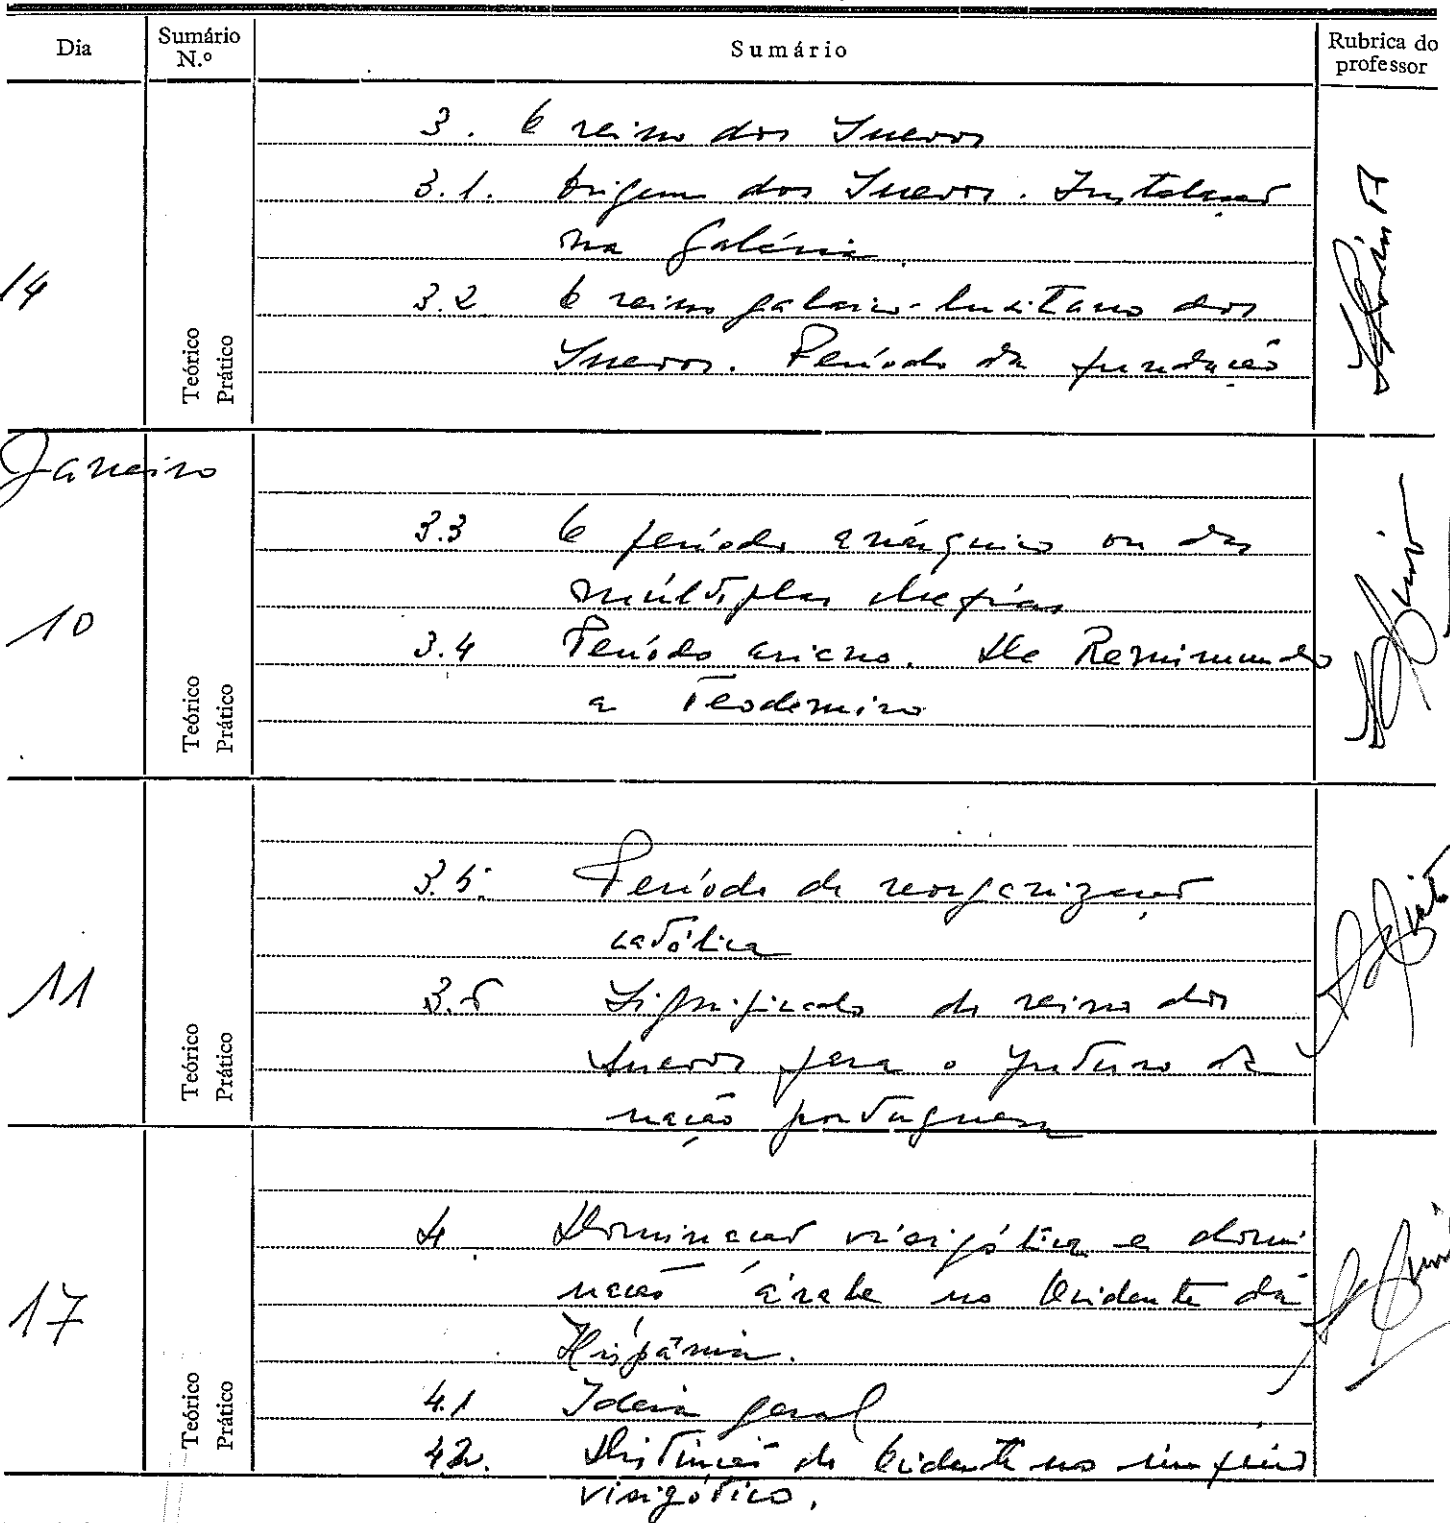 Dia
Sumário N.º
Sumário
Rubrica do professor
14
Teórico
Prático
3. O reino dos Suevos
3.1. Origem dos Suevos. Instalação
na Galécia.
3.2. O reino galaico-lusitano dos
Suevos. Período da fundação
Janeiro
10
Teórico
Prático
3.3 O período anárquico ou das
múltiplas chefias
3.4 Período ariano. De Remismundo
a Teodemiro
11
Teórico
Prático
3.5. Período de reorganização
católica
3.6 Significado do reino dos
Suevos para o futuro da
nação portuguesa
17
Teórico
Prático
4. Dominação visigótica e domi
nação árabe no Ocidente da
Hispânia.
4.1 Ideia geral
4.2. Distinção do Ocidente no império
visigótico.